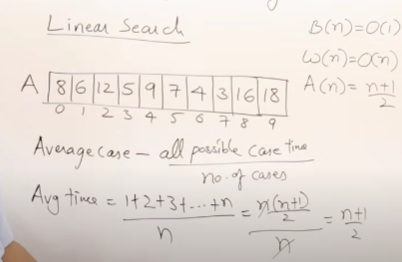 Linear Search
B(n)=O(1)
W(n)=O(n)
A(n)= n+1/2
A 8 6 12 5 9 7 4 3 16 18
0 1 2 3 4 5 6 7 8 9
Average case - all possible case time / no. of cases
Avg time = 1+2+3+...+n / n = n(n+1)/2 / n = n+1/2